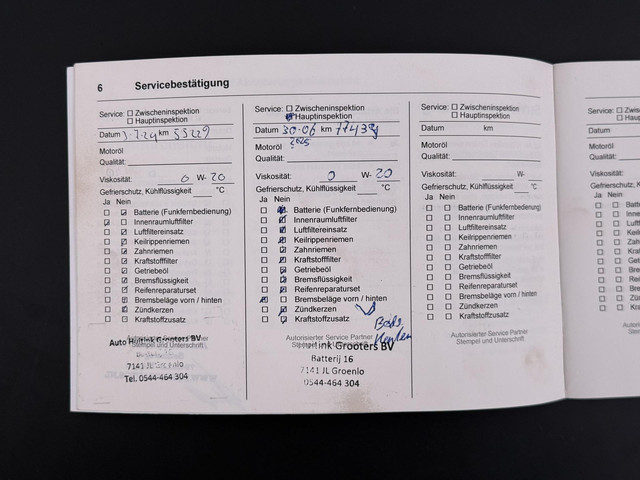 6 Servicebestätigung
Service: Zwischeninspektion
Hauptinspektion
Datum 3-7-24 km 55229
Motoröl
Qualität:
Viskosität: 0 W- 20
Gefrierschutz, Kühlflüssigkeit °C
Ja Nein
Batterie (Funkfernbedienung)
Innenraumluftfilter
Luftfiltereinsatz
Keilrippenriemen
Zahnriemen
Kraftstofffilter
Getriebeöl
Bremsflüssigkeit
Reifenreparaturset
Bremsbeläge vorn / hinten
Zündkerzen
Kraftstoffzusatz
Stempel und Unterschrift
Auto Grooters BV
7141 JL Groenlo
Tel. 0544-464 304
Service: Zwischeninspektion
Hauptinspektion
Datum 30-06 km
2025
Motoröl
Qualität:
Viskosität: 0 W- 20
Gefrierschutz, Kühlflüssigkeit °C
Ja Nein
Batterie (Funkfernbedienung)
Innenraumluftfilter
Luftfiltereinsatz
Keilrippenriemen
Zahnriemen
Kraftstofffilter
Getriebeöl
Bremsflüssigkeit
Reifenreparaturset
Bremsbeläge vorn / hinten
Zündkerzen
Kraftstoffzusatz
Autorisierter Service Partner
Grooters BV
Batterij 16
7141 JL Groenlo
0544-464 304
Service: Zwischeninspektion
Hauptinspektion
Datum km
Motoröl
Qualität:
Viskosität: W-
Gefrierschutz, Kühlflüssigkeit °C
Ja Nein
Batterie (Funkfernbedienung)
Innenraumluftfilter
Luftfiltereinsatz
Keilrippenriemen
Zahnriemen
Kraftstofffilter
Getriebeöl
Bremsflüssigkeit
Reifenreparaturset
Bremsbeläge vorn / hinten
Zündkerzen
Kraftstoffzusatz
Autorisierter Service Partner
Stempel und Unterschrift
Service:
Datum
Motoröl
Qualität:
Viskosität:
Ja Nein